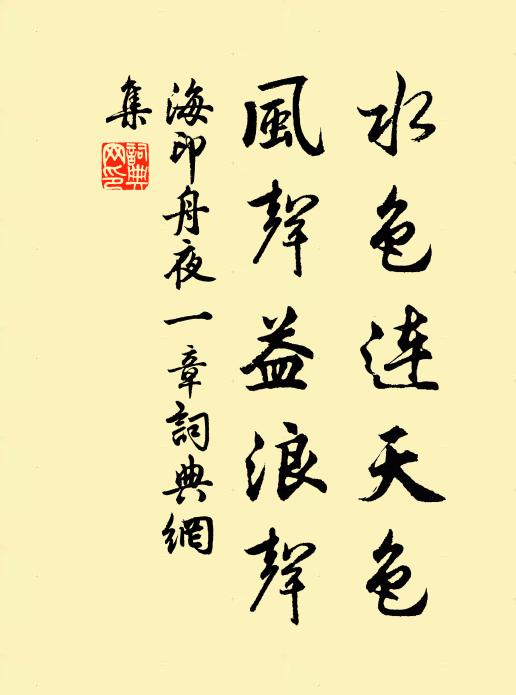 水色連天色
風聲益浪聲
海印舟夜一章詞典網
集
詞典
网印